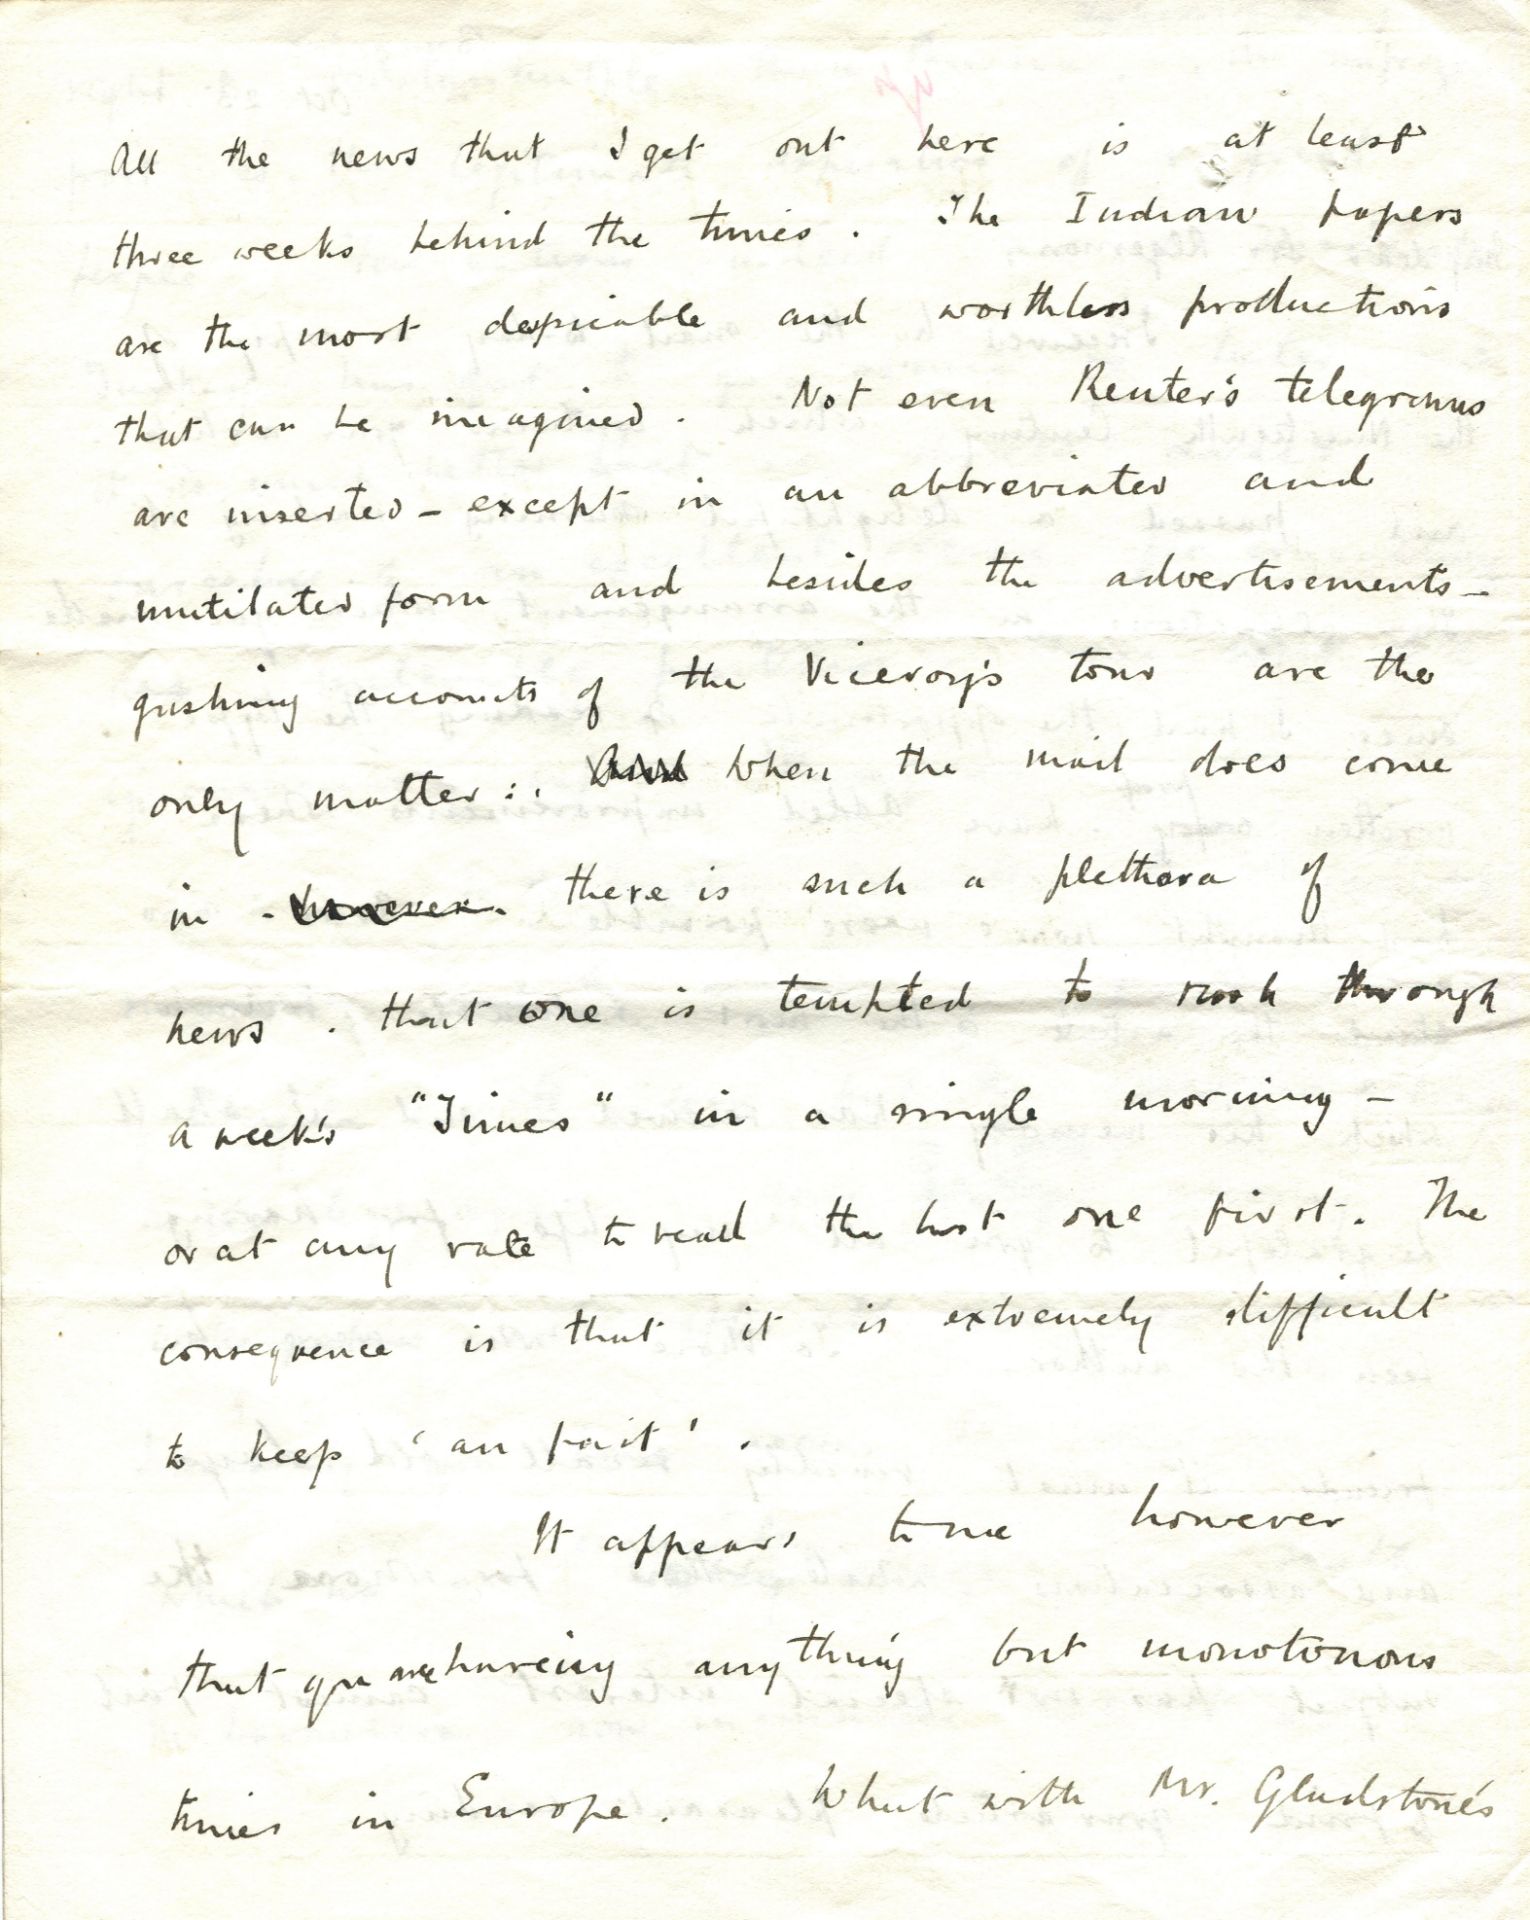 All the news that I get out here is at least
three weeks behind the times. The Indian papers
are the most despicable and worthless productions
that can be imagined. Not even Reuter's telegrams
are inserted – except in an abbreviated and
mutilated form and besides the advertisements –
gushing accounts of the Viceroy's tour are the
only matter:. And When the mail does come
in - however. there is such a plethora of
news. that one is tempted to rush through
a week's "Times" in a single morning –
or at any rate to read the last one first. The
consequence is that it is extremely difficult
to keep 'au fait'.
It appears to me however
that you are having anything but monotonous
times in Europe. What with Mr. Gladstone's